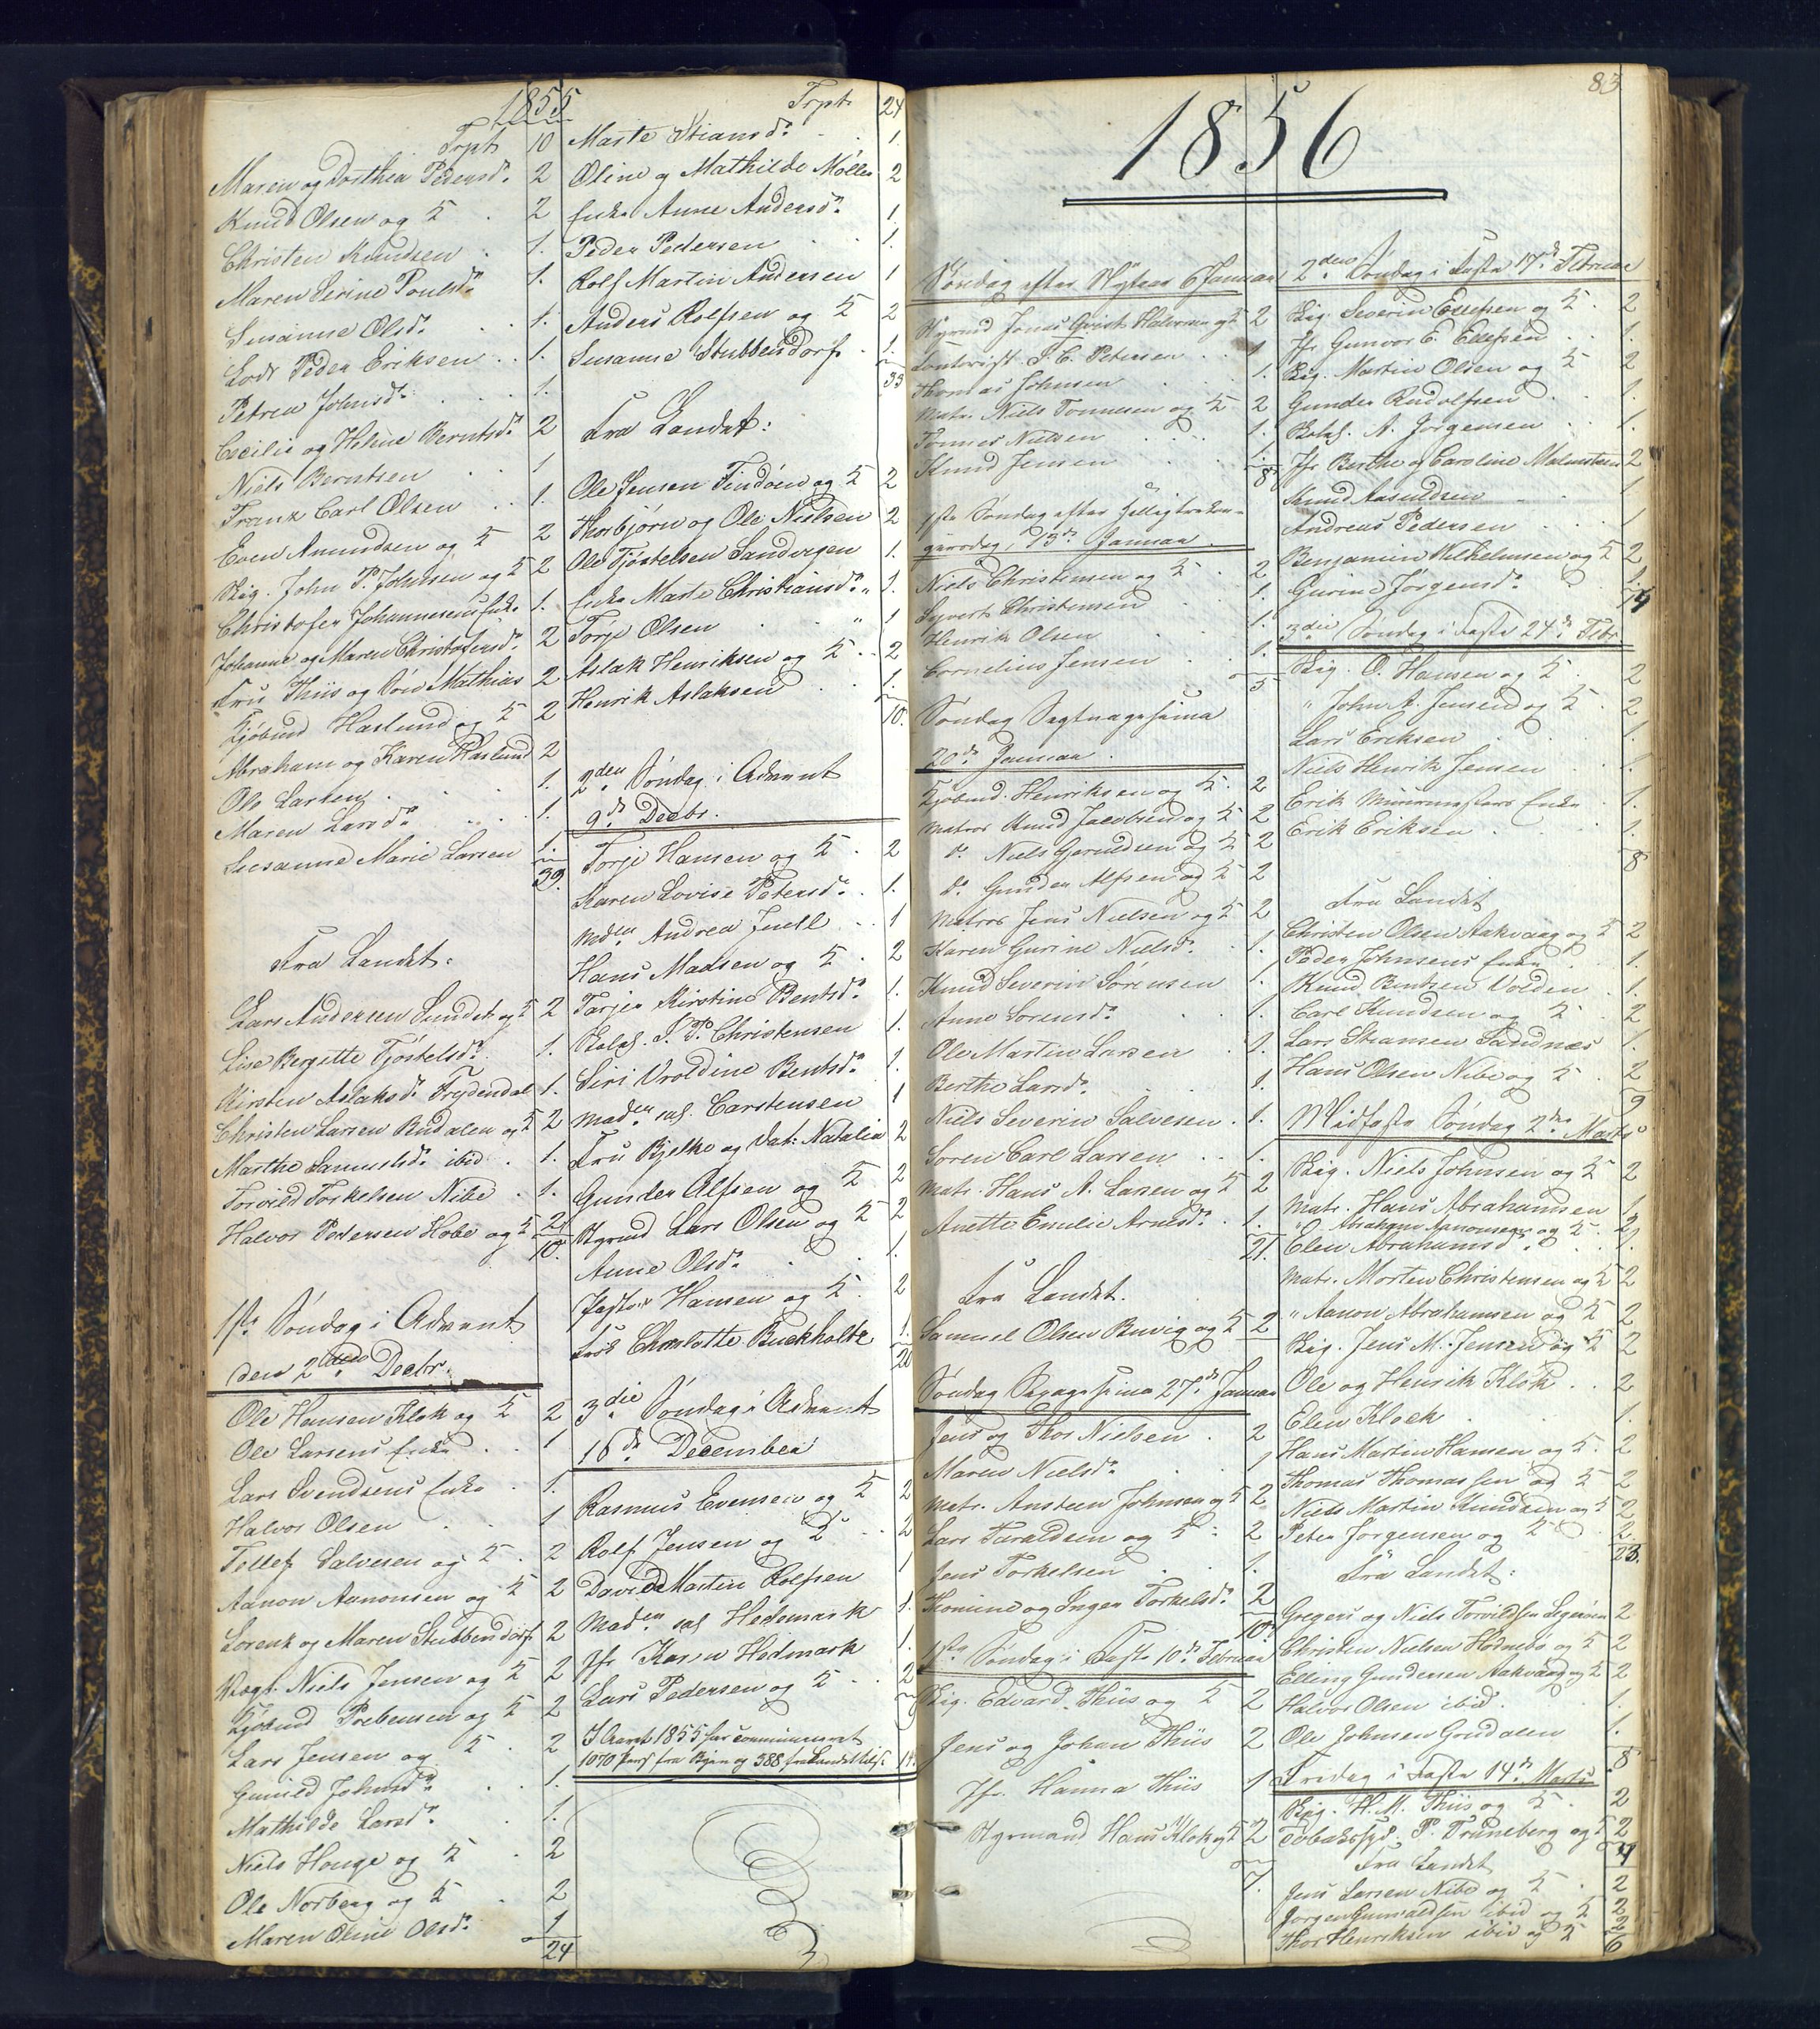 1855
Trpt 10
Maren og Dorthea Pedersd. 2
Knud Olsen og H 2
Christen Knudsen 1.
Maren Serine Poulsd. 1.
Susanne Olsd. 1.
Lods Peder Eriksen 1.
Petrea Johnsd. 1.
Cecilie og Helene Berntsd. 2
Niels Berntsen 1
Franz Carl Olsen 1.
Even Amundsen og H 2
Skig. John P. Johnsen og H 2
Christofer Johannesens Enke 1.
Johanne og Maren Christofersd. 2
Fru Thiis og Søn Mathias 2
Kjøbmd Haslund og H 2
Abraham og Karen Haslund 2
Ole Larsen 1.
Maren Larsd. 1.
Susanne Marie Larsen 1.
39.
Fra Landet:
Lars Andersen Sundet og H 2
Lise Bergitte Tjøstelsd. 1.
Kirsten Aslaksd. Frydendal 1.
Christen Larsen Rudalen og H 2
Marthe Samuelsd. ibid 1.
Torvild Torkelsen Nibe 1.
Halvor Pedersen Hobe og H 2
10.
1ste Søndag i Advent
den 2den Decbr.
Ole Hansen Klok og H 2
Ole Larsens Enke 1
Lars Svendsens Enke 1.
Halvor Olsen 1
Tellef Salvesen og H 2
Aanon Aanonsen og H 2
Lorenz og Maren Stubbendorf 2
Vægt. Niels Jensen og H 2
Kjøbmd Prebensen og H 2
Lars Jensen og H 2
Gunild Johnsd. 1.
Mathilde Larsd. 1.
Niels Houge og H 2
Ole Norberg og H 2
Maren Oline Olsd. 1
24
Trpt 24
Marte Stiansd. 1.
Oline og Mathilde Møller 2
Enke Anne Andersd. 1.
Peder Pedersen 1.
Rolf Martin Andersen 1
Anders Rolfsen og H 2
Susanne Stubbendorf 1.
33
Fra Landet:
Ole Jensen Tindøen og H 2
Thorbjørn og Ole Nielsen 2
Ole Tjøstelsen Sandvigen 1.
Enke Marte Christiansd. 1.
Torje Olsen 1
Aslak Henriksen og H 2
Henrik Aslaksen 1.
10.
2den Søndag i Advent
9d. Decbr.
Torje Hansen og H 2
Karen Lovise Petersd. 1.
Mden Andrea Juell 1
Hans Madsen og H 2
Tarjer Kirstine Bentsd. 1.
Bolaf. S. P. Christensen 1.
Siri Vroldine Bentsd. 1.
Maden sal. Carstensen 1
Fru Bjelke og Dat: Natalia 2
Gunder Alfsen og H 2
Styrmd Lars Olsen og H 2
Anne Olsd. 1.
Pastor Hansen og H 2
Frøk Charlotte Buckholtz 1.
20
3die Søndag i Advent
16d. December
Rasmus Evensen og H 2
Rolf Jensen og H 2
David Martin Rolfsen 1
Maden sal Hedemark 1.
Jfr Karen Hedmark 1.
Lars Pedersen og H 2
9
I Aaret 1855 har communiceret
1070 Pers fra Byen og 388 fra Landet tils. 14.
83
1856
Søndag efter Nytaar 6 Januar
Styrmd Jonas Qvist Halvorsen og H 2
Contorist J. C. Petersen 1
Thomas Johnsen 1.
Matr. Niels Tønnesen og H 2
Tønnes Nielsen 1.
Knud Jensen 1.
8
1ste Søndag efter Helligtrekon-
gersdag, 13d. Januar.
Niels Christensen og H 2
Syvert Christensen 1.
Henrik Olsen 1.
Cornelius Jensen 1.
5
Søndag Septuagesima
20d. Januar.
Kjøbmd. Henriksen og H 2
Matros Knud Jacobsen og H 2
d. Niels Jeruldsen og H 2
d. Gunder Alfsen og H 2
Matros Jens Nielsen og H 2
Karen Gurine Nielsd. 1.
Knud Severin Sørensen 1.
Anne Sorensd. 1.
Ole Martin Larsen 1.
Berthe Larsd. 1.
Niels Severin Salvesen 1.
Søren Carl Larsen 1.
Matr. Hans A. Larsen og H 2
Anette Emilie Arnesd. 1.
21.
Fra Landet.
Samuel Olsen Buvig og H 2
Søndag Sexagesima 27d. Januar
Jens og Thor Nielsen 2
Maren Nielsd. 1
Matr. Ansteen Johnsen og H 2
Lars Taraldsen og H 2
Jens Torkelsen 1.
Thomine og Inger Torkelsd. 2
10.
1ste Søndag i Faste 10d. Februar
Skig. Edvard Thiis og H 2
Jens og Johan Thiis 2
Jfr. Hanna Thiis 1
Styrmand Hans Klok og H 2
7.
2den Søndag i Faste 17d. Februar
Skig. Severin Ellefsen og H 2
Jfr Gunvor E. Ellefsen 1.
Skig. Martin Olsen og H 2
Gunder Rudolfsen 1.
Bolaf. A. Jørgensen 1.
Jfr Berthe og Caroline Malmstrøm 2
Knud Aasuldsen 1
Andreas Pedersen 1
Benjamin Wilhelmsen og H 2
Gurine Jørgensd. 1.
14
3die Søndag i Faste 24d. Febr.
Skig. O. Hansen og H 2
" John A. Jensen og H 2
Lars Eriksen 1.
Niels Henrik Jensen 1.
Erik Muurmesters Enke 1.
Erik Eriksen 1.
8
Fra Landet
Christen Olsen Aakvaag og H 2
Peder Johnsens Enke 1.
Knud Bentsen Volden 1.
Carl Knudsen og H 2
Lars Stiansen Sandnæs 1.
Hans Olsen Nibe og H 2
9
Midfaste Søndag 2den Marts
Skig. Niels Johnsen og H 2
Matr. Hans Abrahamsen 1
" Abraham Aanonsen og H 2
Elen Abrahamsd. 1.
Matr. Morten Christensen og H 2
" Aanon Abrahamsen og H 2
Skig. Jens M. Jensen og H 2
Ole og Henrik Klok 2
Elen Klock 1.
Hans Martin Hansen og H 2
Thomas Thomassen og H 2
Niels Martin Knudsen og H 2
Peter Jørgensen og H 2
23.
Fra Landet:
Gregers og Niels Torvildsen Segerøen 2
Christen Nielsen Hødnebø og H 2
Elling Gundersen Aakvaag og H 2
Halvor Olsen ibid. 1.
Ole Johnsen Grudalen 1.
8
Fredag i Faste 14d. Marts
Skig. H. M. Thiis og H 2
Tobaksspd. P. Truneberg og H 2
4
Fra Landet
Jens Larsen Nibe og H 2
Jørgen Gunvaldsen ibid og H 2
Thor Henriksen ibid og H 2
6